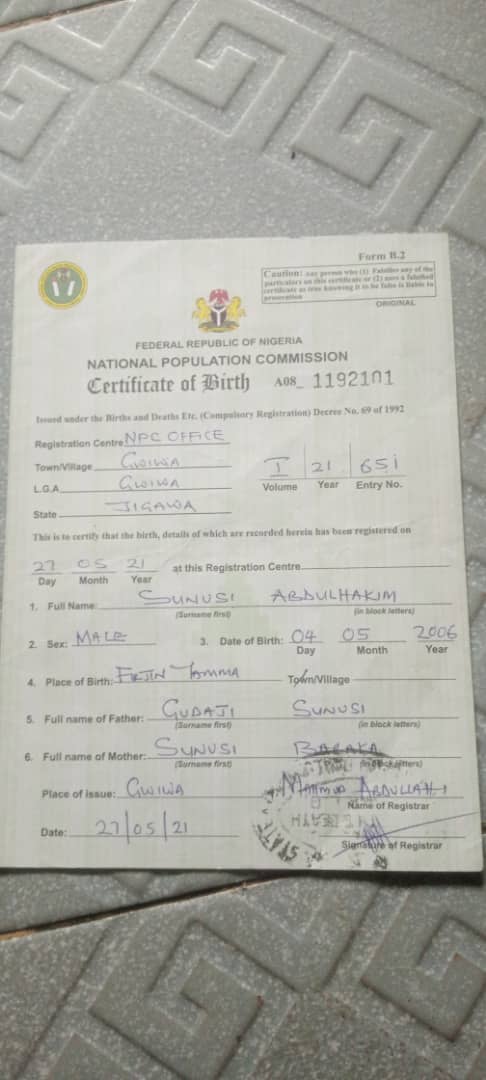 Form B.2
Caution: Any person who (1) Falsifies any of the
particulars on this certificate or (2) uses a falsified
certificate as true knowing it to be false is liable to
prosecution
ORIGINAL
FEDERAL REPUBLIC OF NIGERIA
NATIONAL POPULATION COMMISSION
Certificate of Birth A08_ 1192101
Issued under the Births and Deaths Etc. (Compulsory Registration) Decree No. 69 of 1992
Registration Centre NPC OFFICE
Town/Village GWIWA
L.G.A GWIWA
State JIGAWA
I 21 651
Volume Year Entry No.
This is to certify that the birth, details of which are recorded herein has been registered on
27 05 21 at this Registration Centre
Day Month Year
1. Full Name: SUNUSI ABDULHAKIM
(Surname first) (in block letters)
2. Sex: MALE 3. Date of Birth: 04 05 2006
Day Month Year
4. Place of Birth: Town/Village
5. Full name of Father: GUDAJI SUNUSI
(Surname first) (in block letters)
6. Full name of Mother: SUNUSI BARAKA
(Surname first) (in block letters)
Place of Issue: GWIWA ABDULLAHI
Name of Registrar
Date: 27/05/21
Signature of Registrar